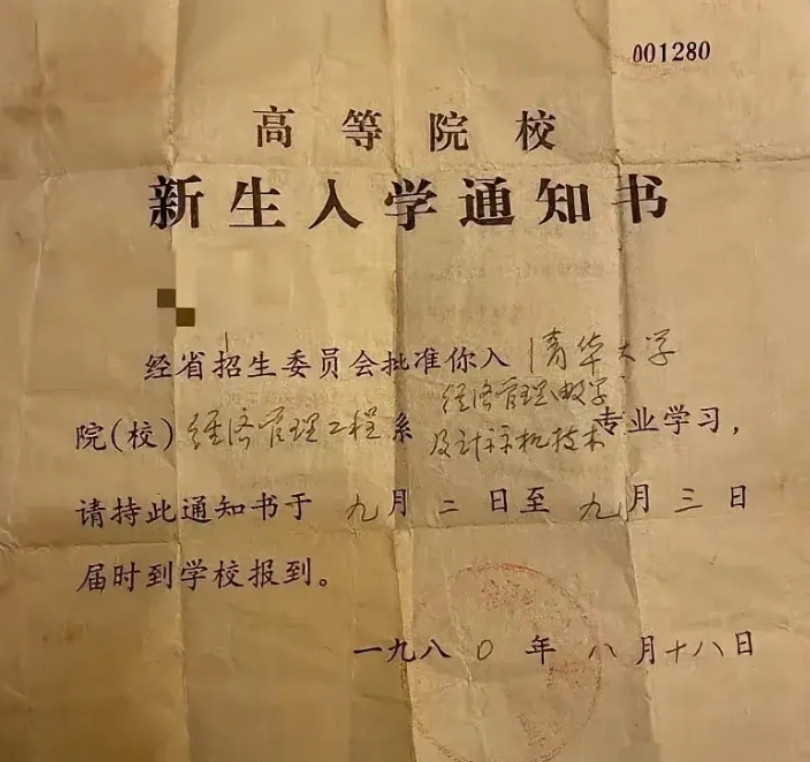 001280
高等院校
新生入学通知书
经省招生委员会批准你入 清华大学
院(校) 经济管理工程系 经济管理数学
及计算机技术 专业学习，
请持此通知书于 九月 二 日至 九月 三 日
届时到学校报到。
一九八 0 年 八月十八日